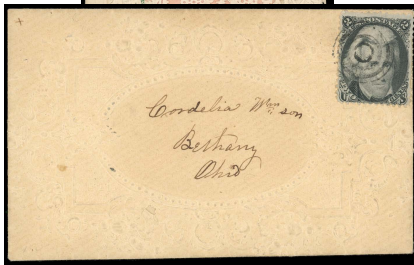 Cordelia Wmson
Bethany
Ohio